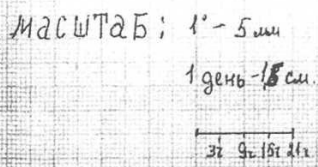 масштаб: 1° - 5 мм
1 день - 1,6 см.
3ч 9ч 15ч 21ч